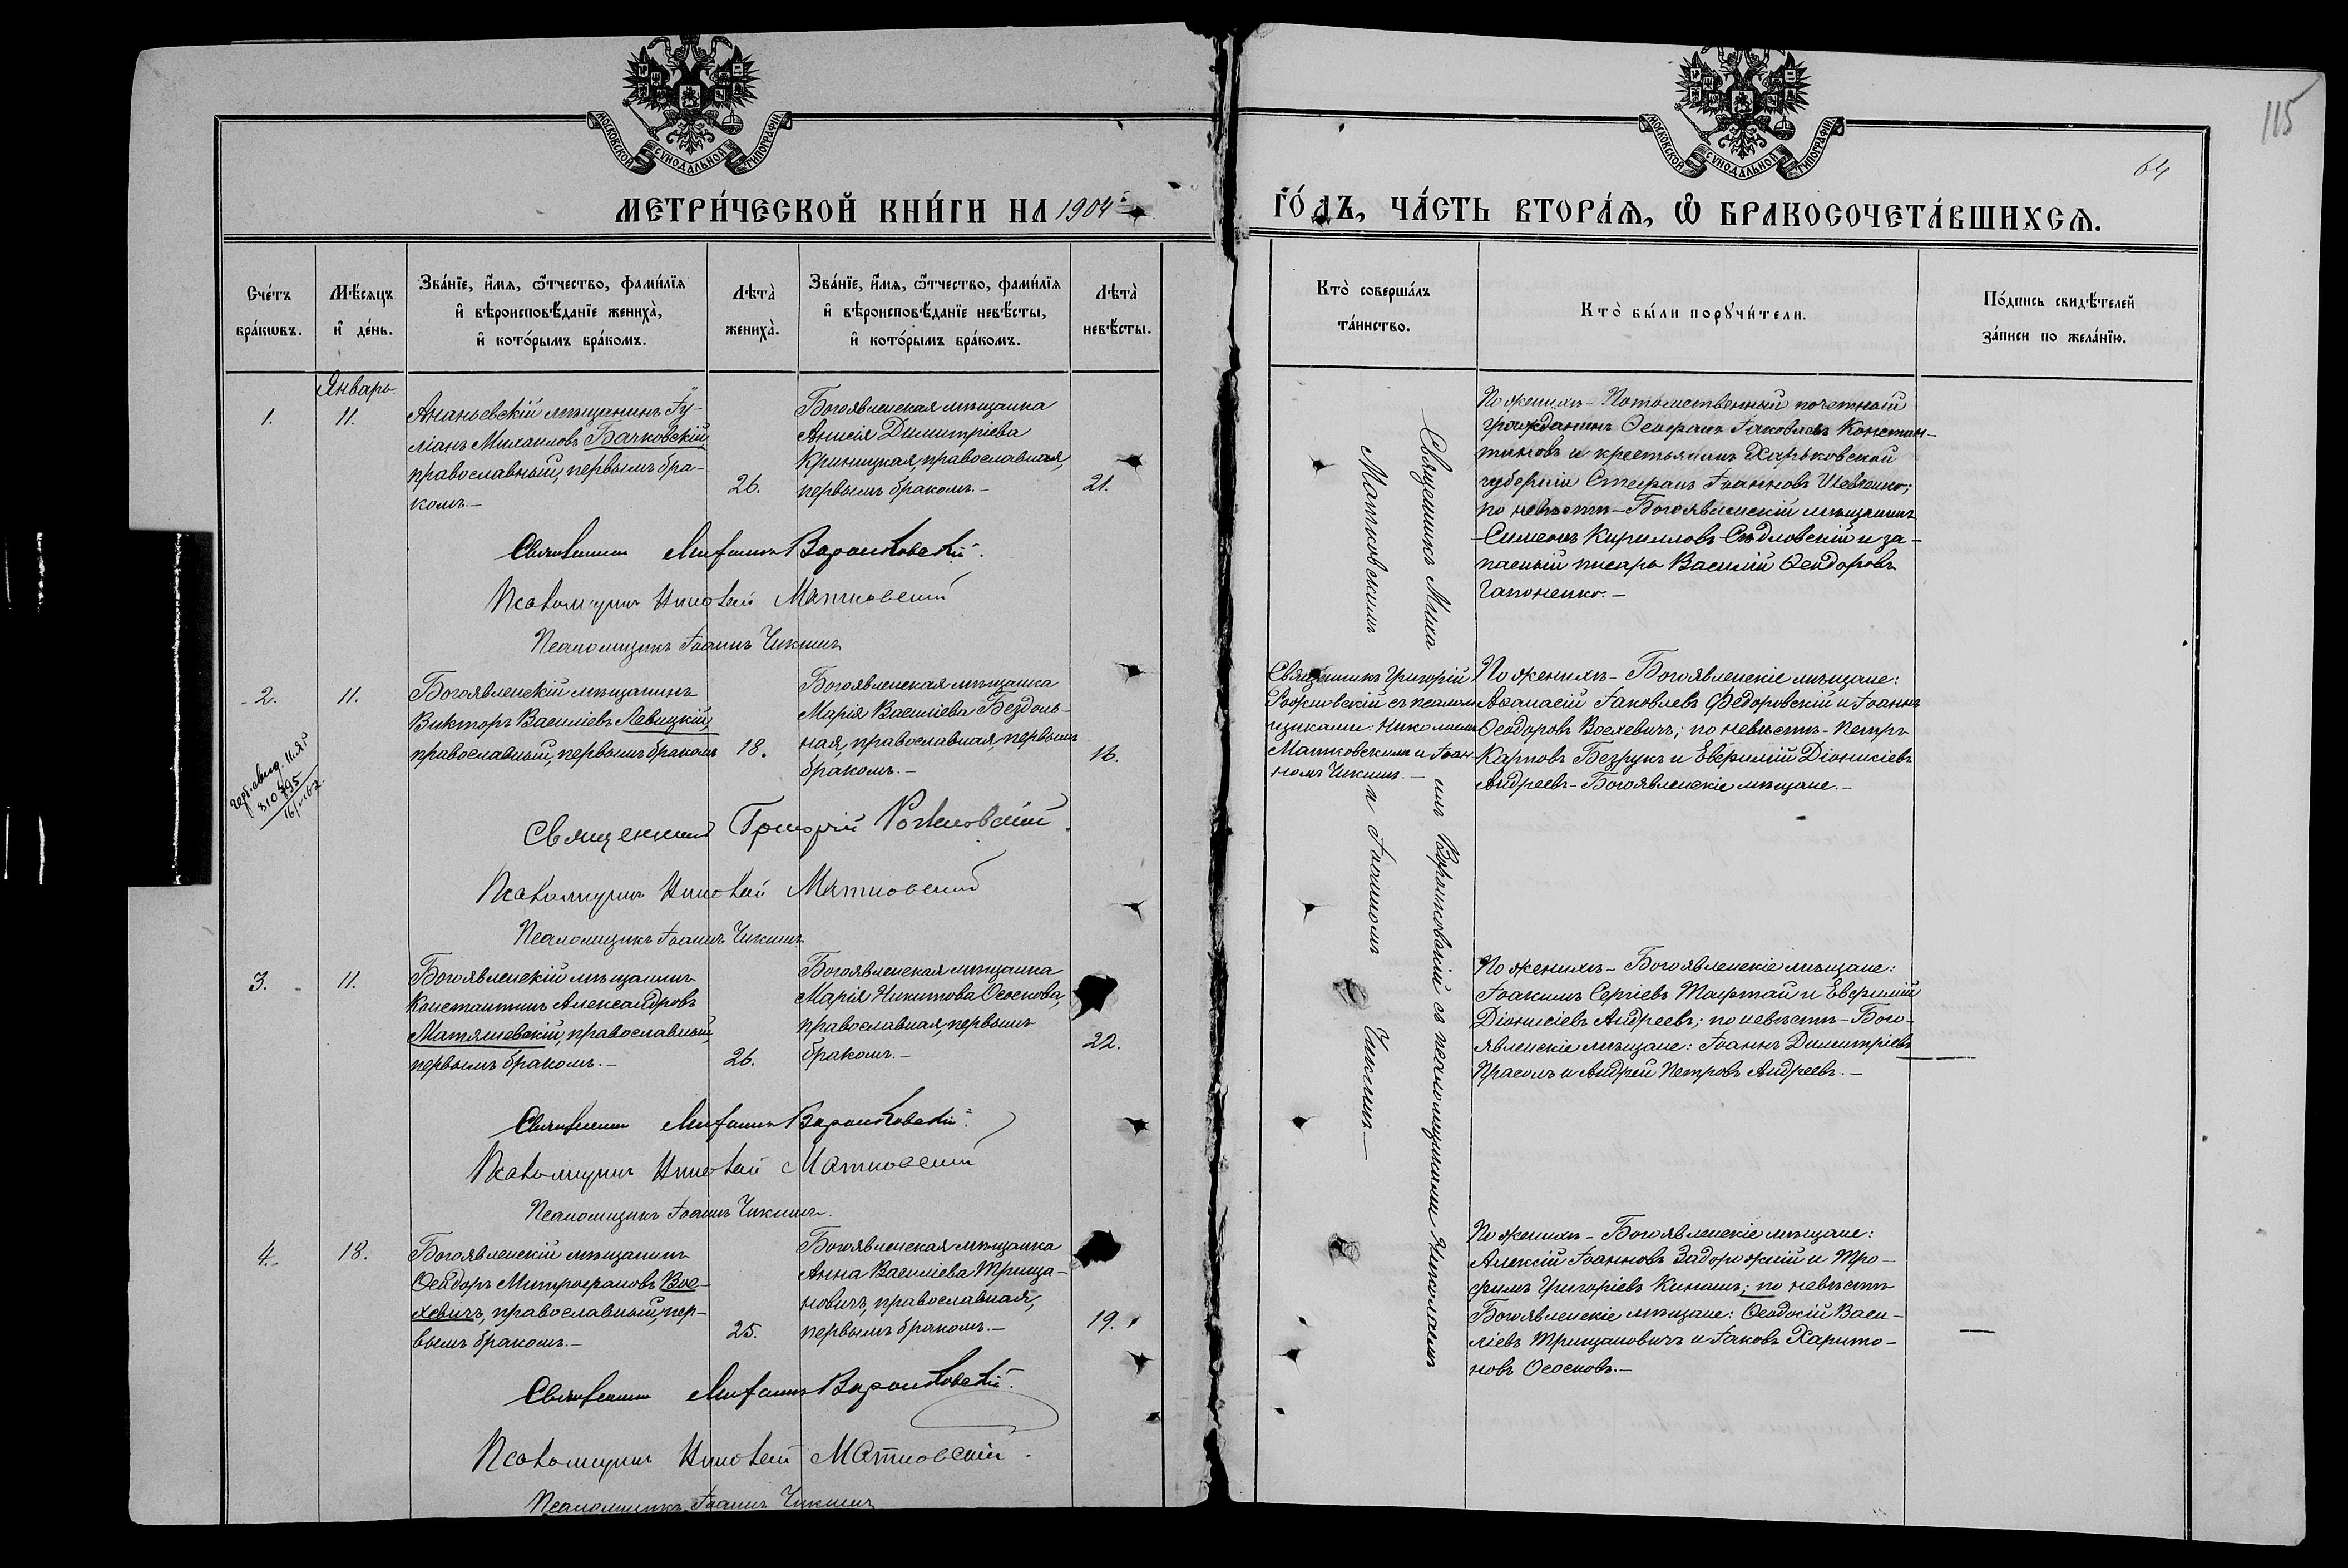 МОСКОВСКОЙ СѴНОДАЛЬНОЙ ТИПОГРАФІИ
МЕТРИ́ЧЕСКОЙ КНИ́ГИ НА 1904
Сче́тъ бра́кωвъ.
Мѣ́сяцъ и҆ де́нь.
Зва́нїе, и҆́мѧ, ѻ҆́тчество, фами́лїѧ
и҆ вѣроисповѣ́данїе жениха̀,
и҆ кото́рымъ бра́комъ.
Лѣта̀ жениха̀.
Зва́нїе, и҆́мѧ, ѻ҆́тчество, фами́лїѧ
и҆ вѣроисповѣ́данїе невѣ́сты,
и҆ кото́рымъ бра́комъ.
Лѣта̀ невѣ́сты.
Январь
1.
11.
Ананьевскій мѣщанинъ Іу-
ліанъ Михаиловъ Бачковскій
православный, первымъ бра-
комъ.-
26.
Богоявленская мѣщанка
Анисія Димитріева
Криницкая, православная,
первымъ бракомъ.-
21.
Священникъ Варшковскій.
Псаломщикъ Николай Матковскій
Псаломщикъ Іоаннъ Чикминъ
2.
11.
Богоявленскій мѣщанинъ
Викторъ Василіевъ Левицкій,
православный, первымъ бракомъ
18.
Богоявленская мѣщанка
Марія Василіева Бездоль-
ная, православная, первымъ
бракомъ.-
810795
Священникъ Григорій Рожновскій
Псаломщикъ Николай Матковскій
Псаломщикъ Іоаннъ Чикминъ
3.
11.
Богоявленскій мѣщанинъ
Константинъ Александровъ
Матяшевскій, православный,
первымъ бракомъ.-
26.
Богоявленская мѣщанка
Марія Никитова Ососкова,
православная, первымъ
бракомъ.-
22.
Священникъ Варшковскій.
Псаломщикъ Николай Матковскій
Псаломщикъ Іоаннъ Чикминъ.
4.
18.
Богоявленскій мѣщанинъ
Ѳеодоръ Митрофановъ Вос-
хевичъ, православный, пер-
вымъ бракомъ.-
25.
Богоявленская мѣщанка
Анна Василіева Трища-
новичъ, православная,
первымъ бракомъ.-
19.
Священникъ Варшковскій.
Псаломщикъ Николай Матковскій.
Псаломщикъ Іоаннъ Чикминъ
115
64
МОСКОВСКОЙ СѴНОДАЛЬНОЙ ТИПОГРАФІИ
ГО́ДЪ, ЧА́СТЬ ВТОРА́Ѧ, Ѽ БРАКОСОЧЕТА́ВШИХСѦ.
Кто̀ соверша́лъ
та́инство.
Кто̀ бы́ли порꙋчи́тели.
По́дпись свидѣ́телей
за́писи по жела́нїю.
Священникъ Миха
илъ Варшковскій съ псаломщиками Николаемъ
Матковскимъ
и Іоанномъ Чикмин.-
По женихѣ - Потомственный почетный
гражданинъ Стефанъ Іаковлевъ Констан-
тиновъ и крестьянинъ Харьковской
губерніи Стефанъ Іоанновъ Шевченко;
по невѣстѣ - Богоявленскій мѣщанинъ
Симеонъ Кирилловъ Сѣдловскій и за-
пасный писарь Василій Ѳеодоровъ
Гапоненко.-
Священникъ Григорій
Рожновскій съ псалом-
щиками: Николаемъ
Матковскимъ и Іоан-
номъ Чикмин.-
По женихѣ - Богоявленскіе мѣщане:
Аѳанасій Іаковлевъ Федоровскій и Іоаннъ
Ѳеодоровъ Восхевичъ; по невѣстѣ - Петръ
Карповъ Безрукъ и Евѳимій Діонисіевъ
Андреевъ - Богоявленскіе мѣщане.-
По женихѣ - Богоявленскіе мѣщане:
Іоакимъ Сергіевъ Тафтай и Евѳимій
Діонисіевъ Андреевъ; по невѣстѣ - Бого-
явленскіе мѣщане: Іоаннъ Димитріевъ
Прасолъ и Андрей Петровъ Андреевъ.-
По женихѣ - Богоявленскіе мѣщане:
Алексій Іоанновъ Задорожній и Тро-
фимъ Григоріевъ Кинашъ; по невѣстѣ
Богоявленскіе мѣщане: Ѳеодосій Васи-
ліевъ Трищановичъ и Іаковъ Харито-
новъ Ососковъ.-